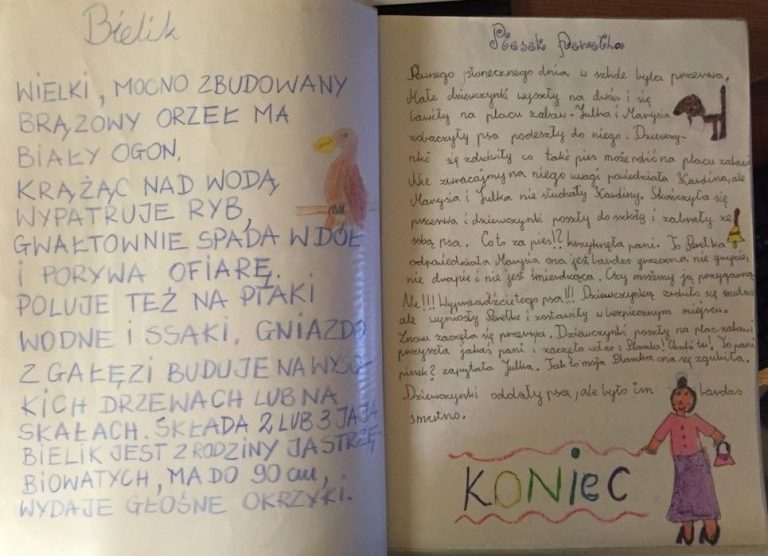 Bielik
WIELKI, MOCNO ZBUDOWANY
BRĄZOWY ORZEŁ MA
BIAŁY OGON.
KRĄŻĄC NAD WODĄ
WYPATRUJE RYB,
GWAŁTOWNIE SPADA W DÓŁ
I PORYWA OFIARĘ.
POLUJE TEŻ NA PTAKI
WODNE I SSAKI. GNIAZDO
Z GAŁĘZI BUDUJE NA WYSO-
KICH DRZEWACH LUB NA
SKAŁACH. SKŁADA 2 LUB 3 JAJA
BIELIK JEST Z RODZINY JASTRZĘ-
BIOWATYCH, MA DO 90 cm,
WYDAJE GŁOŚNE OKRZYKI.
Piesek Perełka
Pewnego słonecznego dnia w szkole była przerwa.
Małe dziewczynki wyszły na dwór i się
bawiły na placu zabaw. Julka i Marysia
zobaczyły psa podeszły do niego. Dziewczy-
nki się zdziwiły co taki pies może robić na placu zabaw
Nie zwracajmy na niego uwagi powiedziała Karolina, ale
Marysia i Julka nie słuchały Karoliny. Skończyła się
przerwa i dziewczynki poszły do szkoły i zabrały ze
sobą psa. Co to za pies!? krzyknęła pani. To Perełka
odpowiedziała Marysia ona jest bardzo grzeczna nie gryzie,
nie drapie i nie jest śmierdząca. Czy możemy ją przygarnąć
Nie!!! Wyprowadźcie tego psa!!! Dziewczynką zrobiło się smutno
ale wyniosły Perełkę i zostawiły w bezpiecznym miejscu.
Znowu zaczęła się przerwa. Dziewczynki poszły na plac zabaw i
przyszła jakaś pani i zaczęła wołać Słamka! Chodź tu! To pani
piesek? zapytała Julka. Tak to moja Słamka ona się zgubiła.
Dziewczynki oddały psa, ale było im bardzo
smutno.
KONIEC